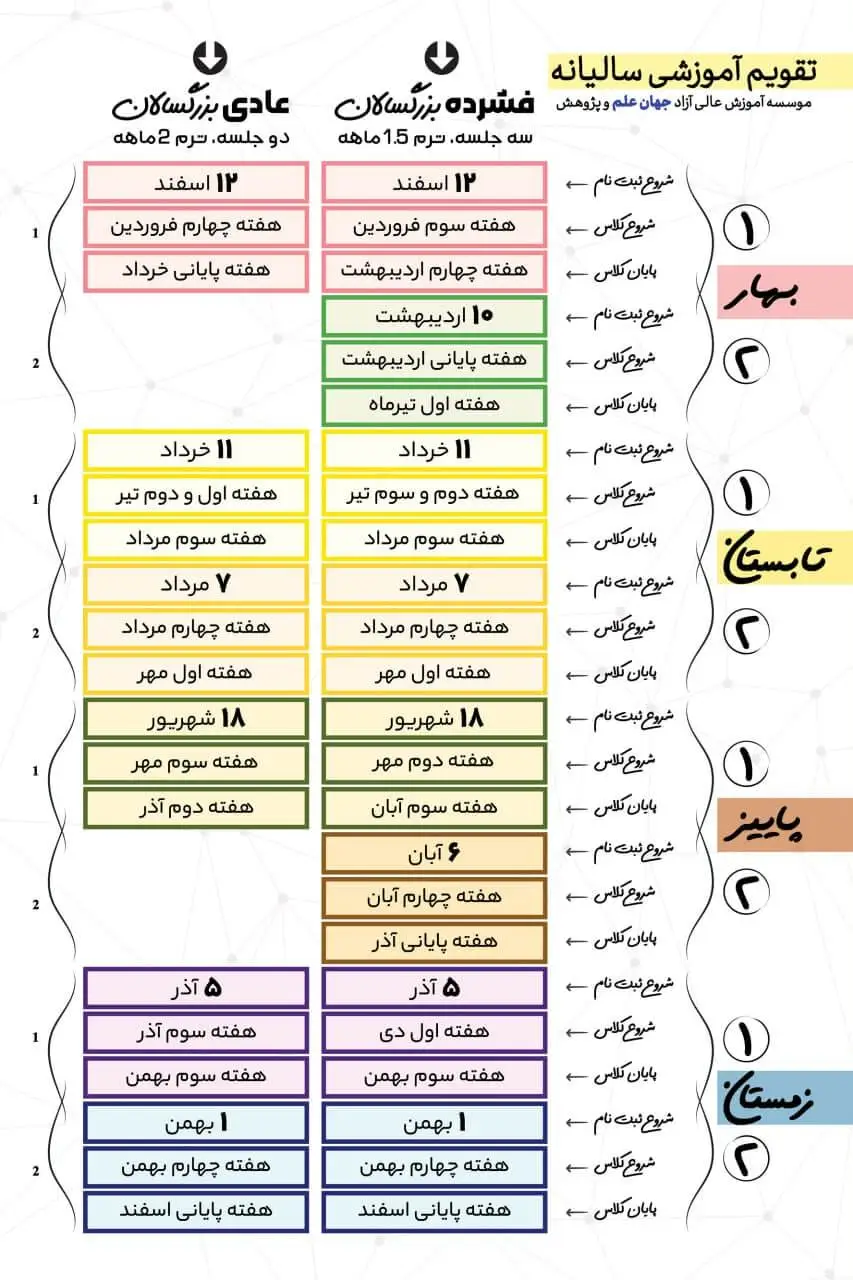 تقویم آموزشی سالیانه
موسسه آموزش عالی آزاد جهان علم و پژوهش
فشرده بزرگسالان
سه جلسه، ترم 1.5 ماهه
عادی بزرگسالان
دو جلسه، ترم 2 ماهه
بهار
۱
شروع ثبت نام ← ۱۲ اسفند ۱۲ اسفند
شروع کلاس ← هفته سوم فروردین هفته چهارم فروردین 1
پایان کلاس ← هفته چهارم اردیبهشت هفته پایانی خرداد
۲
شروع ثبت نام ← ۱۰ اردیبهشت
شروع کلاس ← هفته پایانی اردیبهشت 2
پایان کلاس ← هفته اول تیرماه
تابستان
۱
شروع ثبت نام ← ۱۱ خرداد ۱۱ خرداد
شروع کلاس ← هفته دوم و سوم تیر هفته اول و دوم تیر 1
پایان کلاس ← هفته سوم مرداد هفته سوم مرداد
۲
شروع ثبت نام ← ۷ مرداد ۷ مرداد
شروع کلاس ← هفته چهارم مرداد هفته چهارم مرداد 2
پایان کلاس ← هفته اول مهر هفته اول مهر
پاییز
۱
شروع ثبت نام ← ۱۸ شهریور ۱۸ شهریور
شروع کلاس ← هفته دوم مهر هفته سوم مهر 1
پایان کلاس ← هفته سوم آبان هفته دوم آذر
۲
شروع ثبت نام ← ۶ آبان
شروع کلاس ← هفته چهارم آبان 2
پایان کلاس ← هفته پایانی آذر
زمستان
۱
شروع ثبت نام ← ۵ آذر ۵ آذر
شروع کلاس ← هفته اول دی هفته سوم آذر 1
پایان کلاس ← هفته سوم بهمن هفته سوم بهمن
۲
شروع ثبت نام ← ۱ بهمن ۱ بهمن
شروع کلاس ← هفته چهارم بهمن هفته چهارم بهمن 2
پایان کلاس ← هفته پایانی اسفند هفته پایانی اسفند